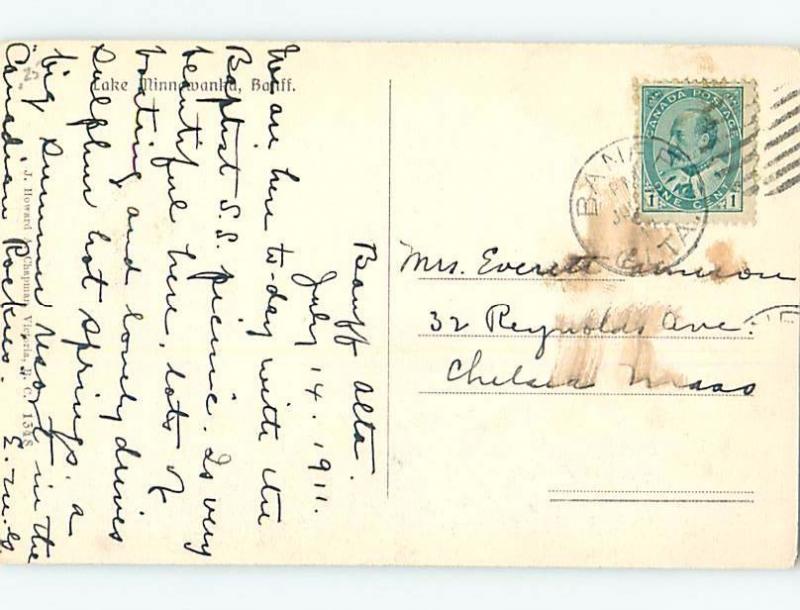 Lake Minnewanka, Banff.
Banff Alta.
July 14. 1911.
We are here to-day with the
Baptist S.S. picnic. Is very
beautiful here, lots of
boating and lovely drives
sulphur hot springs. a
big summer resort in the
"Canadian Rockies."
J. Howard A. Chapman, Victoria, B. C. 1348
CANADA POSTAGE
1 ONE CENT 1
BANFF
ALTA.
Mrs. Everett Cameron
32 Reynolds Ave.
Chelsea Mass